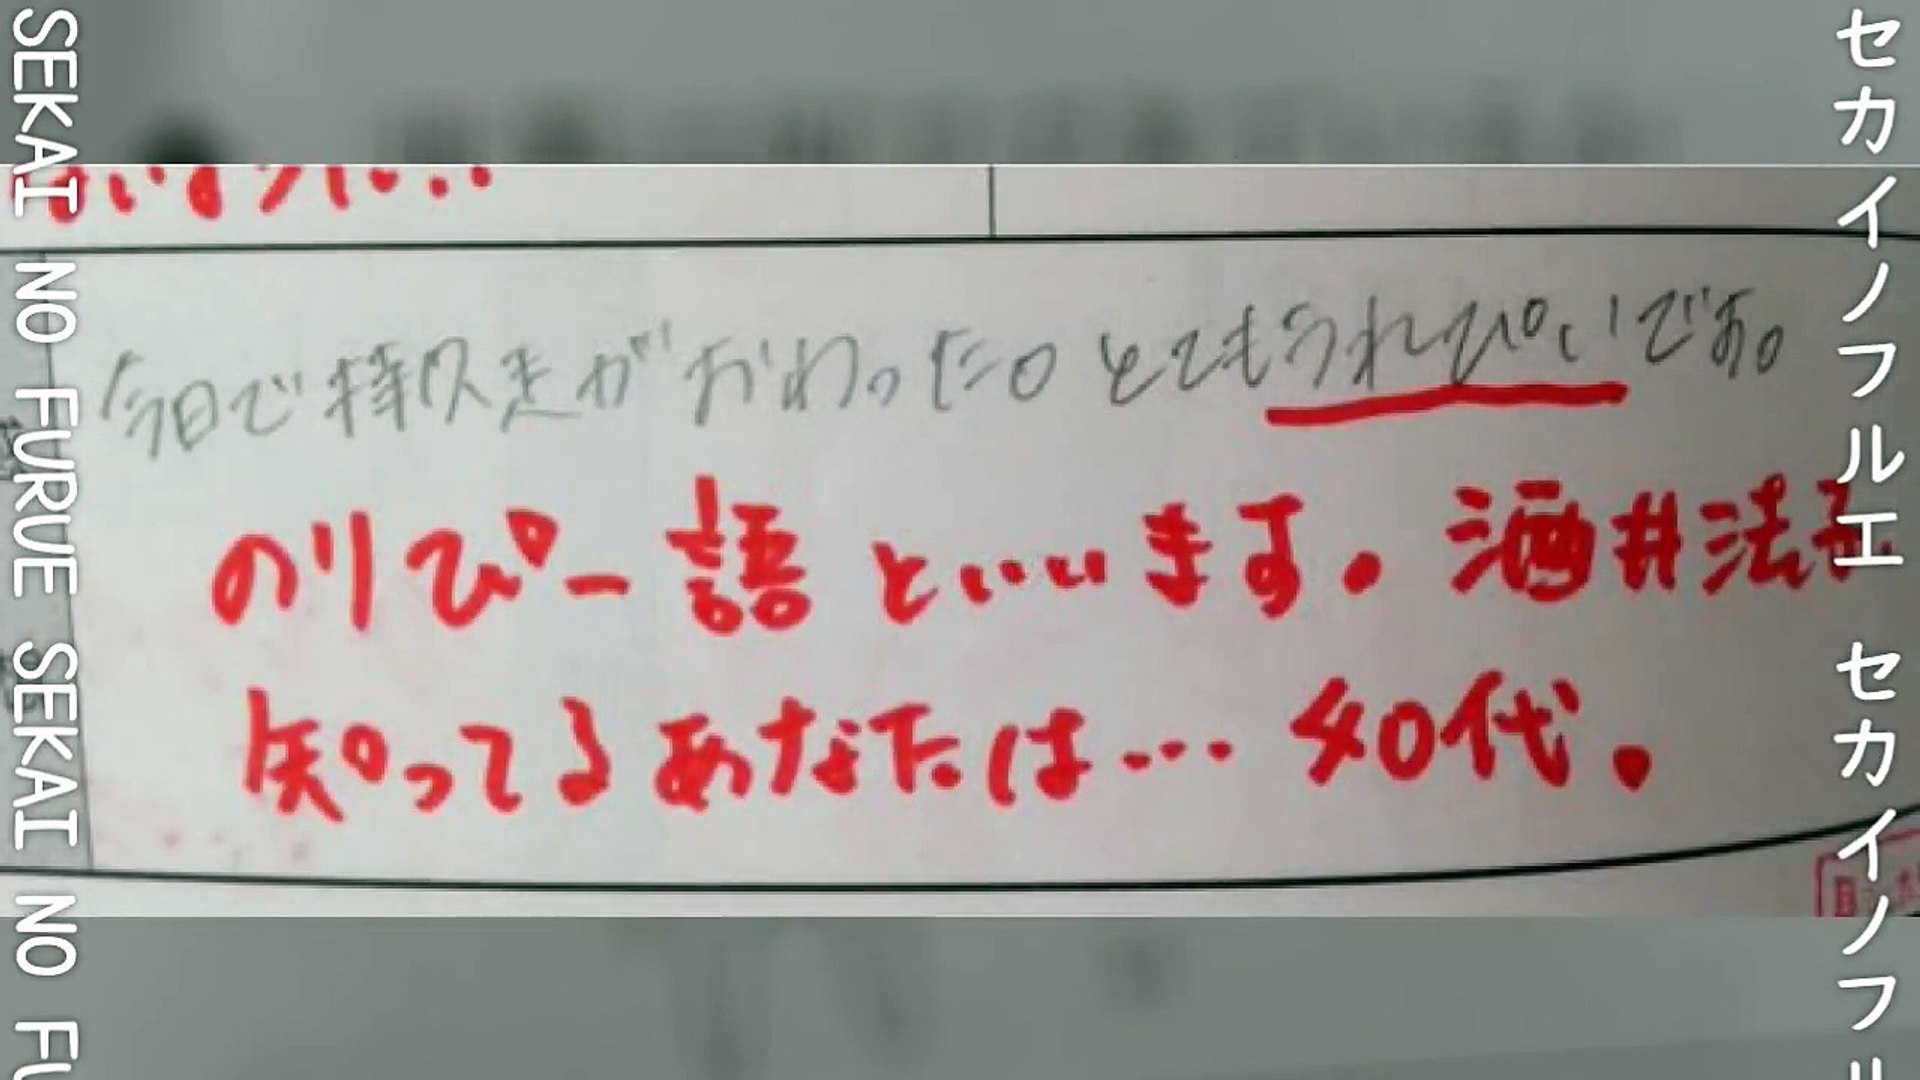 SEKAI NO FURUE SEKAI NO FU
今日で持久走がおわった。とてもうれぴいです。
のりピー語といいます。酒井法子
知ってるあなたは…40代。
セカイノフルエ セカイノフル